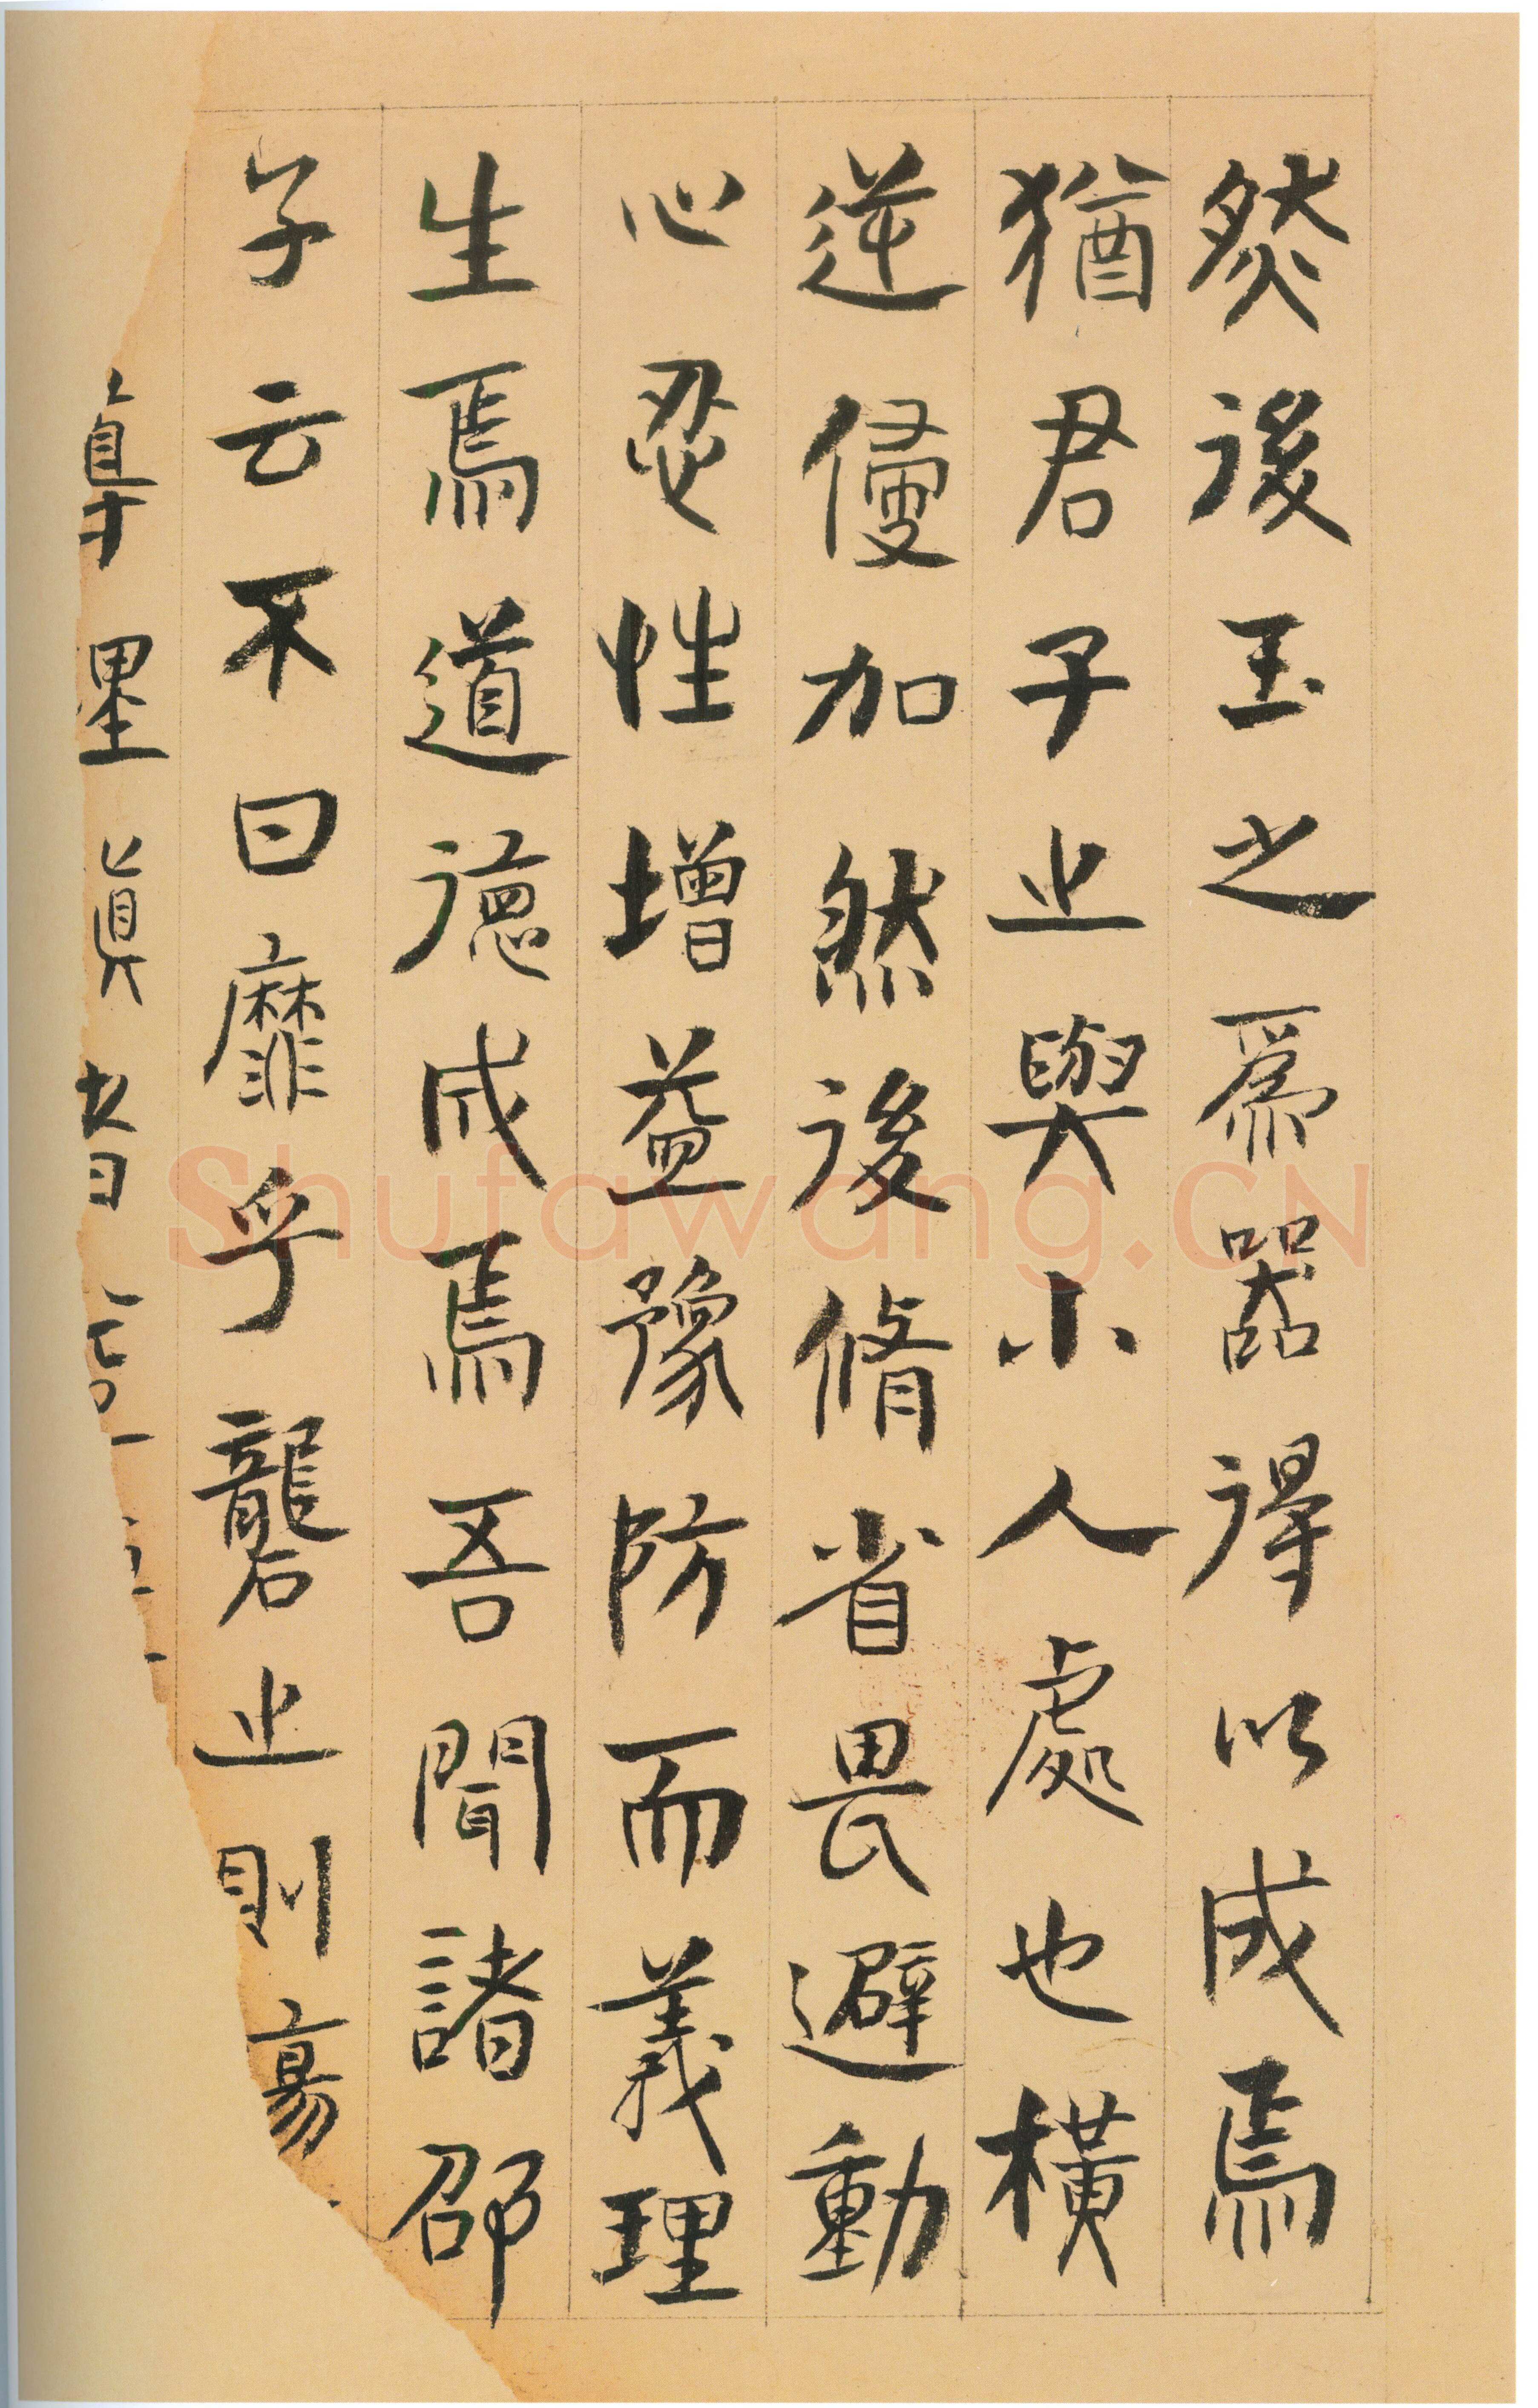 然後玉之爲器得以成焉
猶君子之與小人處也橫
逆侵加然後脩省畏避動
心忍性增益豫防而義理
生焉道德成焉吾聞諸邵
子云不曰靡乎礱之則
Shufawang.CN